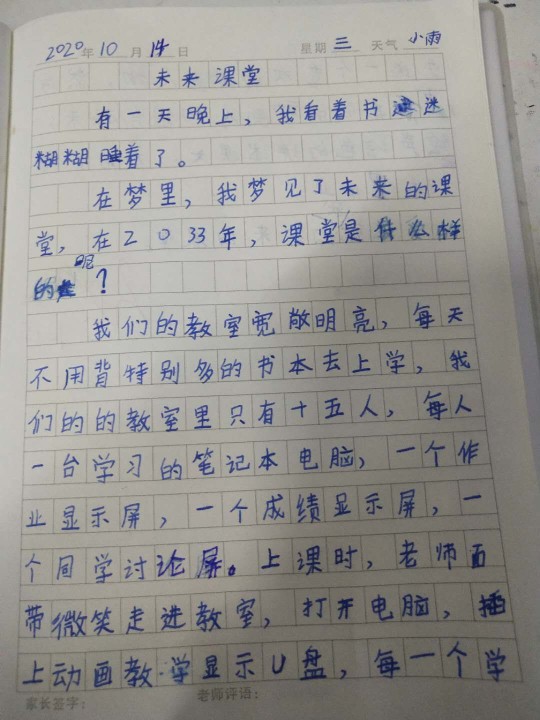 2020年10月14日 星期三 天气小雨
未来课堂
有一天晚上，我看着书迷迷
糊糊睡着了。
在梦里，我梦见了未来的课
堂，在2033年，课堂是什么样
的呢？
我们的教室宽敞明亮，每天
不用背特别多的书本去上学，我
们的的教室里只有十五人，每人
一台学习的笔记本电脑，一个作
业显示屏，一个成绩显示屏，一
个同学讨论屏。上课时，老师面
带微笑走进教室，打开电脑，插
上动画教学显示U盘，每一个学
家长签字： 老师评语：